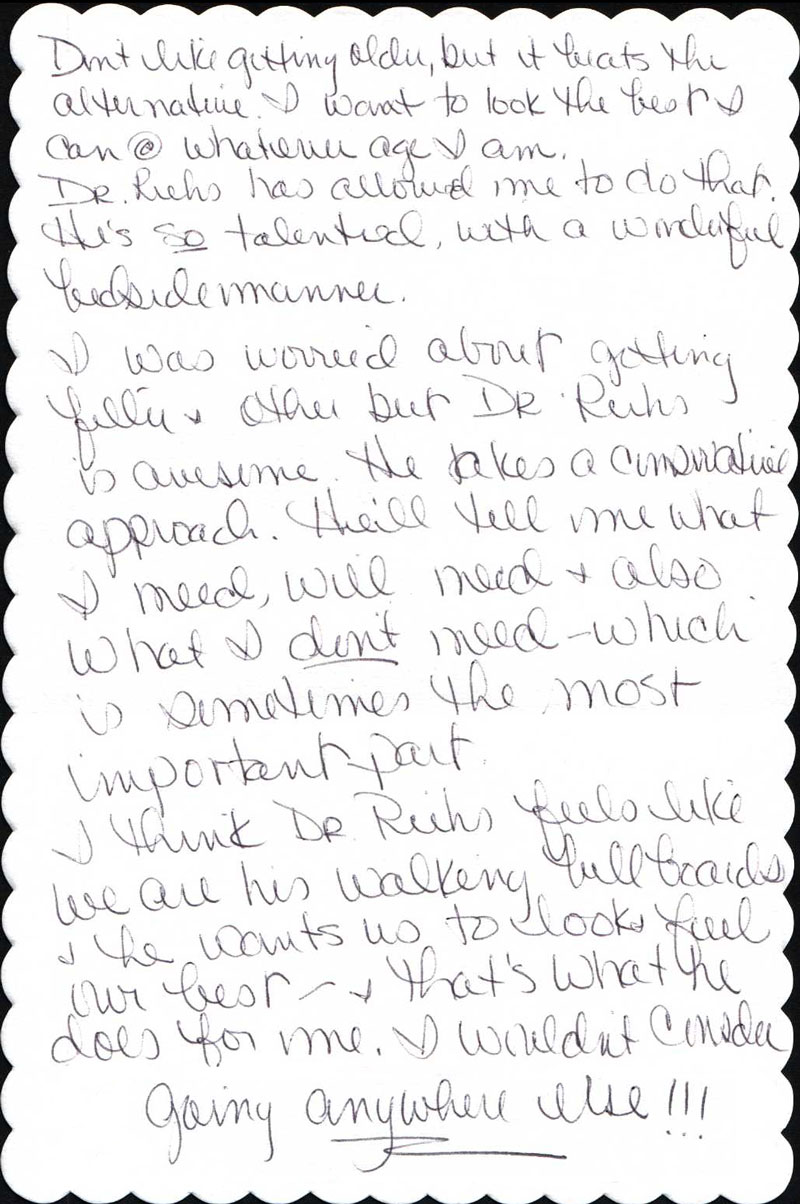 Don't like getting older, but it beats the
alternative. I want to look the best I
can @ whatever age I am.
Dr. Riehs has allowed me to do that.
He's so talented, with a wonderful
bedside manner.
I was worried about getting
fillers & other but Dr Riehs
is awesome. He takes a conservative
approach. He'll tell me what
I need, will need & also
what I don't need - which
is sometimes the most
important part.
I think Dr Riehs feels like
we are his walking billboards
& he wants us to look & feel
our best - & that's what he
does for me. I wouldn't consider
going anywhere else!!!